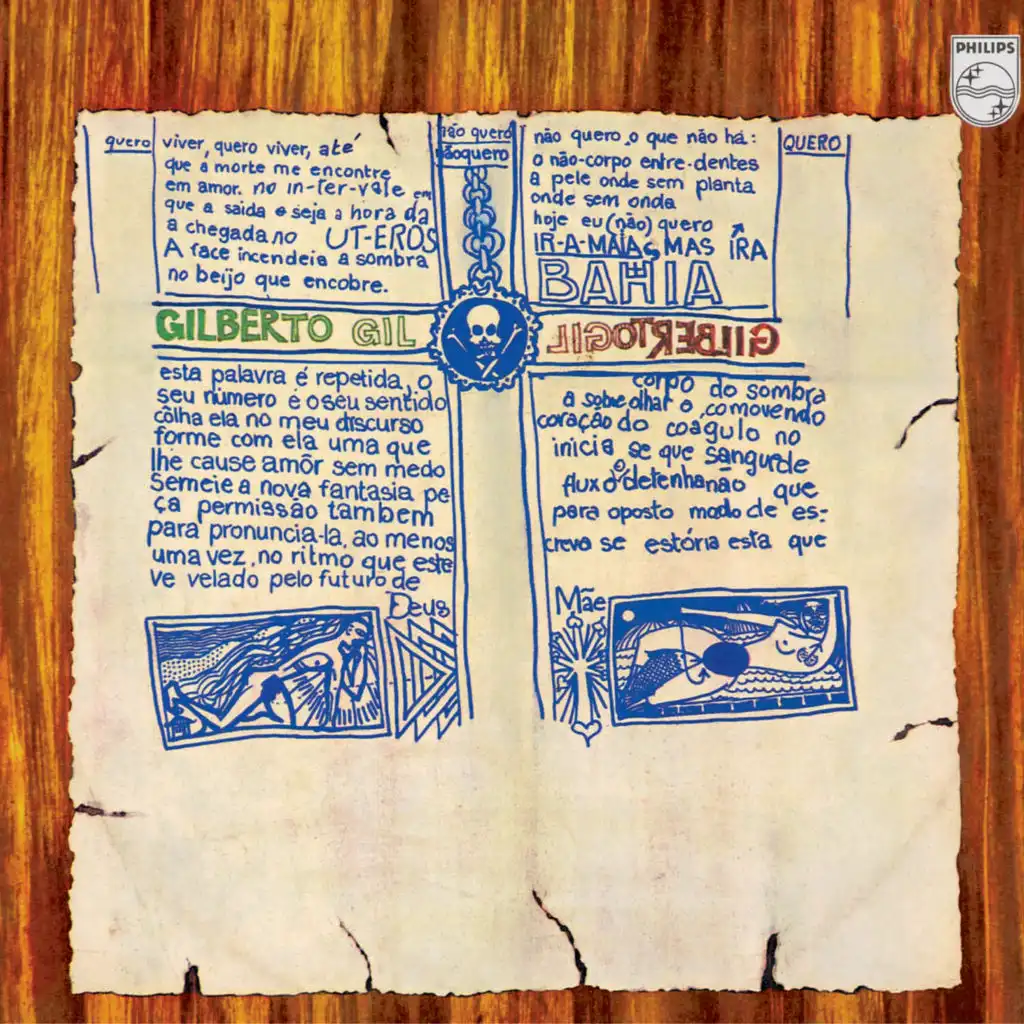 PHILIPS
quero
viver, quero viver, até
que a morte me encontre
em amor. no in-ter-vale em
que a saida e seja a hora da
a chegada no UT-EROS
A face incendeia a sombra
no beijo que encobre.
não quero
nãoquero
não quero o que não há:
o não-corpo entre-dentes
a pele onde sem planta
onde sem onda
hoje eu (não) quero
IR-A-MAIAS MAS IRA
BAHIA
QUERO
GILBERTO GIL
GILBERTO GIL
esta palavra é repetida, o
seu número é o seu sentido
côlha ela no meu discurso
forme com ela uma que
lhe cause amôr sem medo
Semeie a nova fantasia pe
ça permissão tambem
para pronuncia-la, ao menos
uma vez, no ritmo que este
ve velado pelo futuro de
Deus
corpo do sombra
a sobre olhar o comovendo
coração do coagulo no
inicia se que sangue de
fluxo o detenha não que
para oposto modo de es-
creva se estória esta que
Mãe